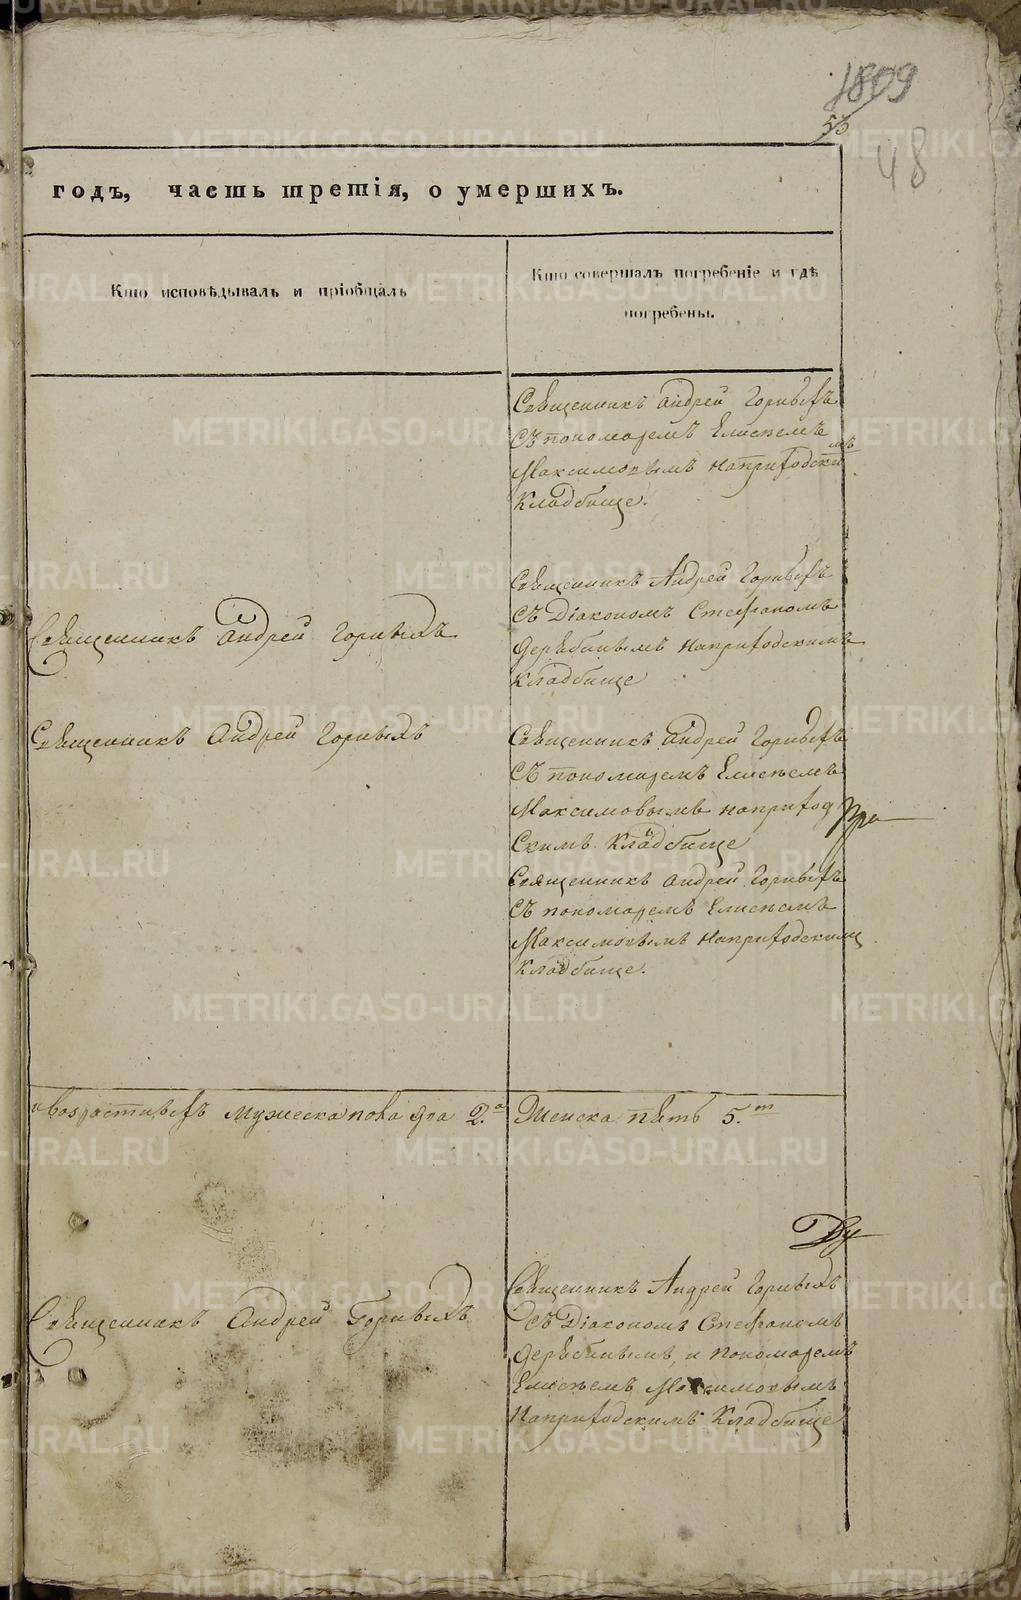 1809
55
48
годъ, часть третія, о умершихъ.
Кто исповѣдывалъ и пріобщалъ
Кто совершалъ погребеніе и гдѣ
погребены.
Священникъ Андрей Горныхъ
Съ пономаремъ Елисѣемъ
Максимовымъ наприходскимъ
Кладбище.
Священникъ Андрей Горныхъ
Священникъ Андрей Горныхъ
Съ Діакономъ Стефаномъ
Дерябинымъ наприходскимъ
кладбище
Священникъ Андрей Горныхъ
Священникъ Андрей Горныхъ
Съ пономаремъ Елисѣемъ
Максимовымъ наприход
Скимъ Кладбище
Священникъ Андрей Горныхъ
Съ пономаремъ Елисѣемъ
Максимовымъ наприходскимъ
кладбище.
возрастныхъ мужеска пола два 2.а Женска пять 5.т
Священникъ Андрей Горныхъ
Священникъ Андрей Горныхъ
Съ Діакономъ Стефаномъ
Дерябинымъ, и пономаремъ
Елисѣемъ Максимовымъ
Наприходскимъ Кладбище
METRIKI.GASO-URAL.RU